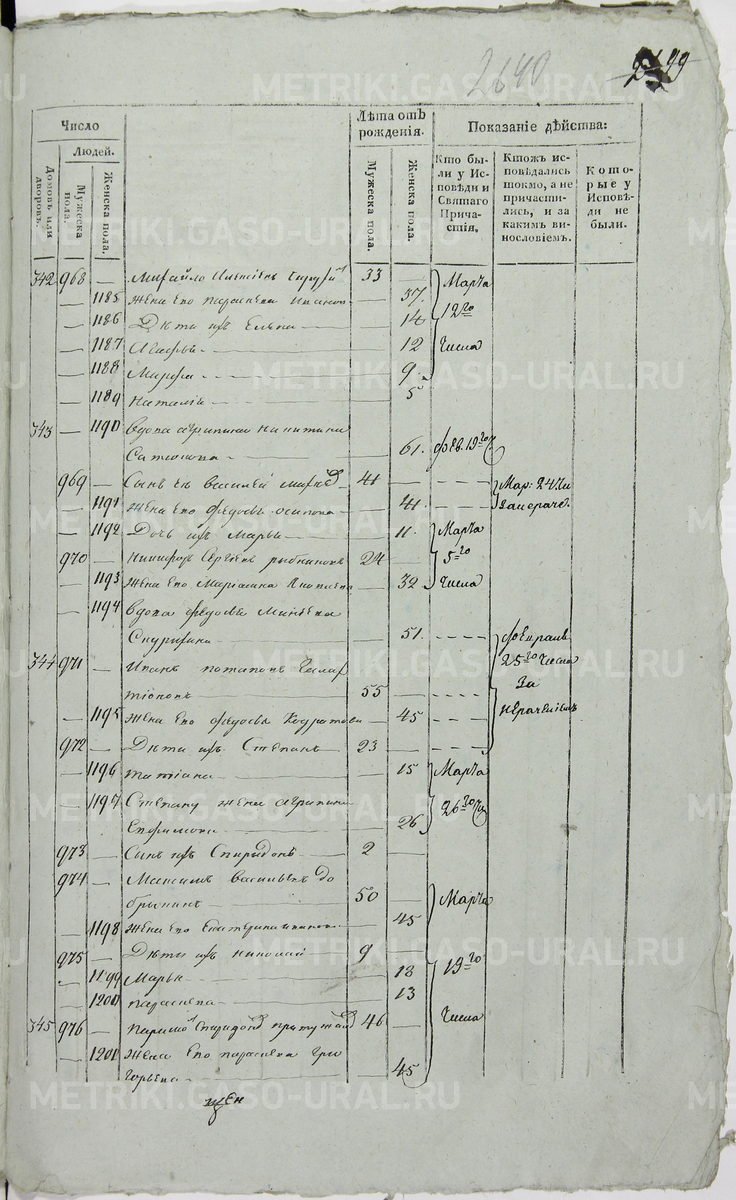 2640
2499
Число
Лѣта отъ рожденія.
Показаніе дѣйства:
Людей.
Домовъ или дворовъ.
Мужеска пола.
Женска пола.
Мужеска пола.
Женска пола.
Кто были у Исповѣди и Святаго Причастія.
Ктожъ исповѣдались токмо, а не причастились, и за какимъ винословіемъ.
Которые у Исповѣди не были.
342 968 — Михайло Алексѣевъ 33 —
— 1185 жена его параскева иванова — 37. Марта
— 1186 Дѣти ихъ Елена — 14 12го
— 1187 Агафья — 12 Числа
— 1188 Марфа — 9
— 1189 наталія — 5
343 — 1190 вдова агрипина никитина
61. фев. 19го
969 — Сынъ ея василей 41 — Мар: 24 чи
— 1191 жена его федосья осипова — 41.
— 1192 Дочь ихъ Марья — 11. Марта
970 — никифоръ Сергѣевъ рыбниковъ 24 — 5го
— 1193 жена его Марiамна — 32 Числа
— 1194 вдова федосья Минѣева
— 51. февраля
344 971 — Иванъ потаповъ 25го Числа
55 — За
— 1195 жена его федосья — 45 нераченіемъ
972 — Дѣти ихъ Степанъ 23 —
— 1196 татіана — 15 Марта
— 1197 Степану жена агрипина 26го Чи
Ефимова — 26
973 — Сынъ ихъ Спиридонъ 2 —
974 — Максимъ васильевъ до
брынинъ 50 — Марта
— 1198 жена его Екатерина иванова — 45
975 — Дѣти ихъ николай 9 —
— 1199 Марья — 18 19го
— 1200 параскева — 13
345 976 — Спиридоновъ 46 — Числа
— 1201 жена его параскева гри
горьева — 45
METRIKI.GASO-URAL.RU